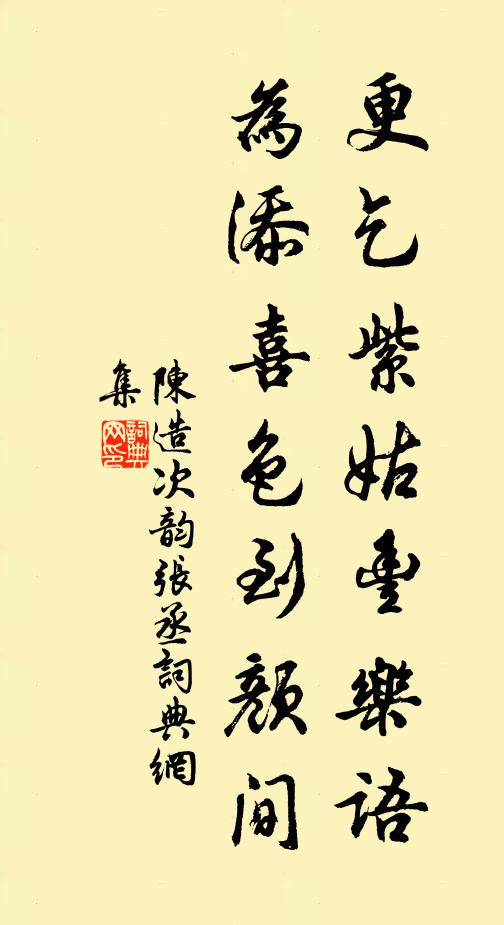 更乞紫姑豐樂語
為添喜色到顏間
陳造次韵張丞詞典網
集
詞典網印